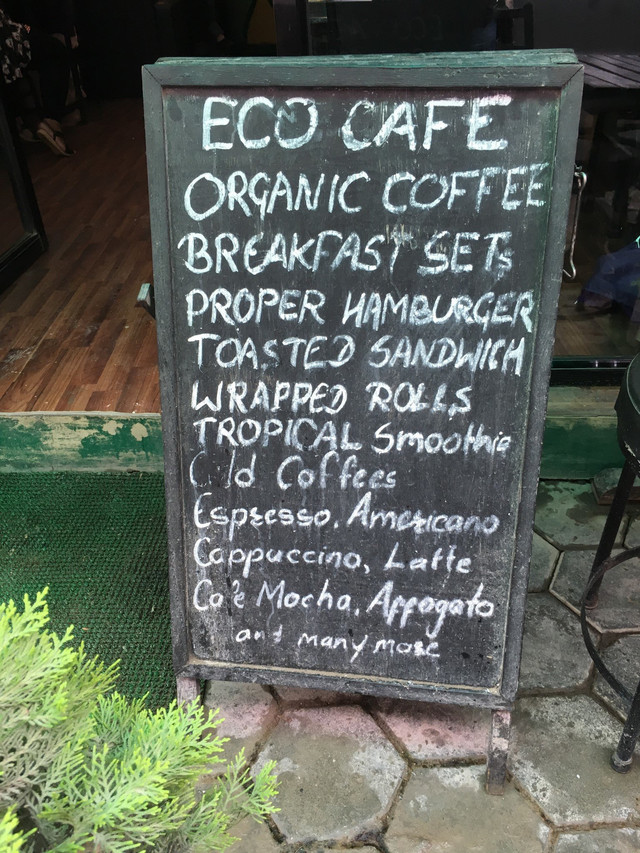 ECO CAFE
ORGANIC COFFEE
BREAKFAST SETs
PROPER HAMBURGER
TOASTED SANDWICH
WRAPPED ROLLS
TROPICAL Smoothie
Cold Coffees
Espresso, Americano
Cappuccino, Latte
Cafe Mocha, Affogato
and many more